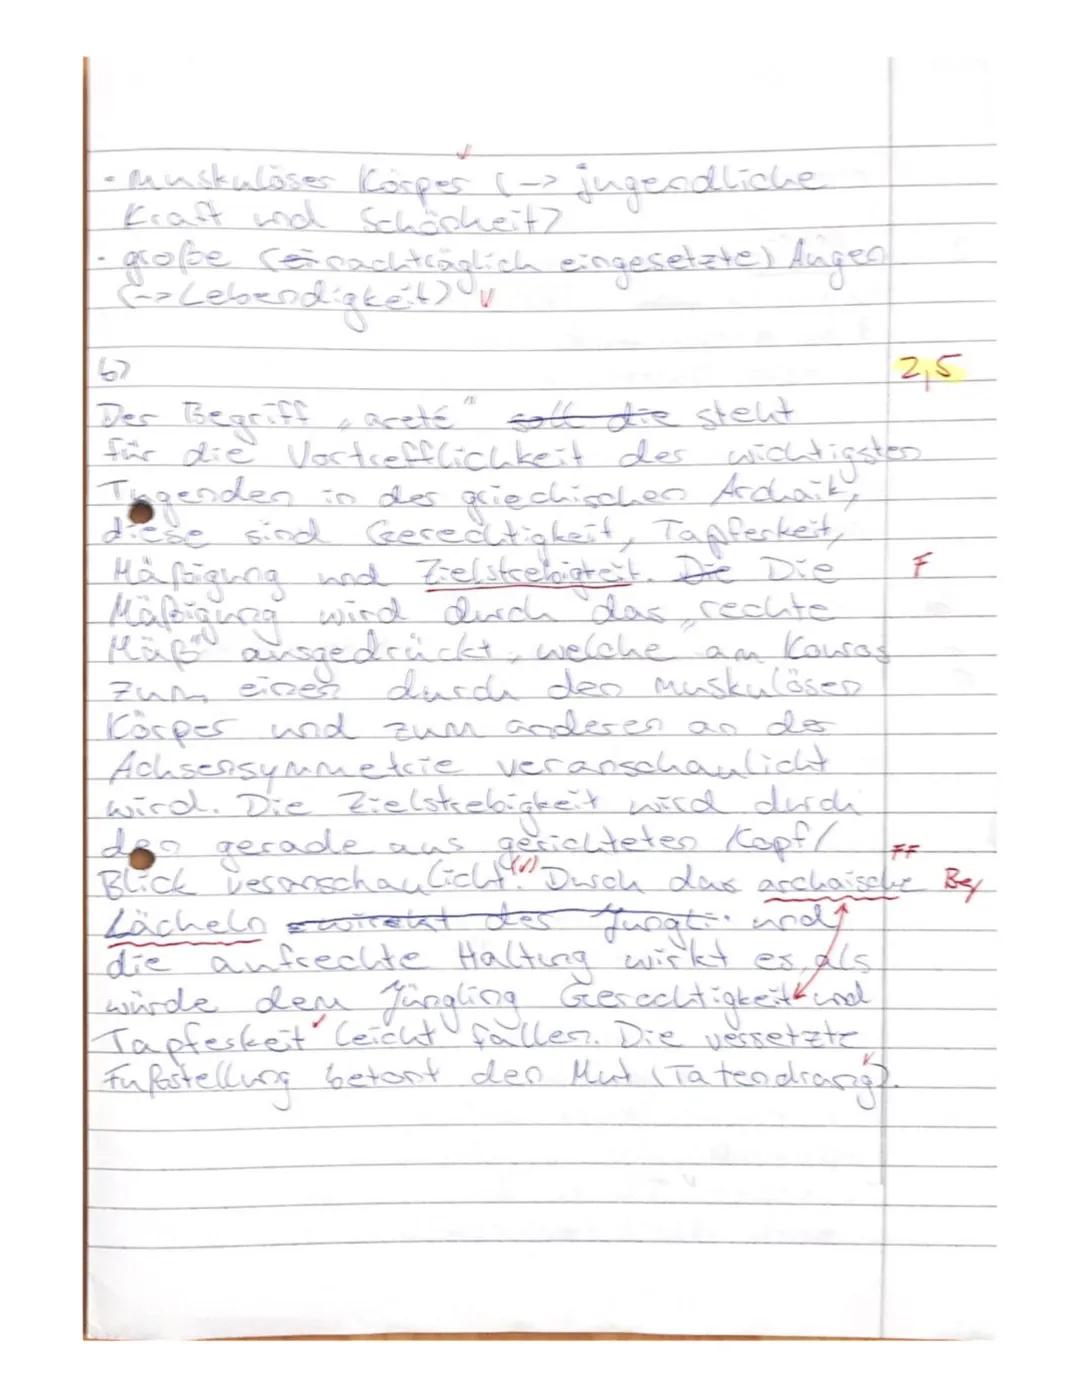 - Muskulöser Körper (-> jugendliche
Kraft und Schönheit)
- große (ei nachträglich eingesetzte) Augen
(-> Lebendigkeit) ✓
b) 2,5
Der Begriff „areté" soll die steht
für die Vortrefflichkeit der wichtigsten
Tugenden in der griechischen Archaik,
diese sind Gerechtigkeit, Tapferkeit,
Mäßigung und Zielstrebigkeit. Die Die F
Mäßigung wird durch das „rechte
Maß" ausgedrückt, welche am Kouros
zum einen durch den muskulösen
Körper und zum anderen an der
Achsensymmetrie veranschaulicht
wird. Die Zielstrebigkeit wird durch
den gerade aus gerichteten Kopf/ FF
Blick veranschaulicht. (✓) Durch das archaische Bez
Lächeln wirkt der Jüngli und
die aufrechte Haltung wirkt es, als
würde dem Jüngling Gerechtigkeit und
Tapferkeit ✓ leicht fallen. Die versetzte
Fußstellung betont den Mut (Tatendrang). ✓